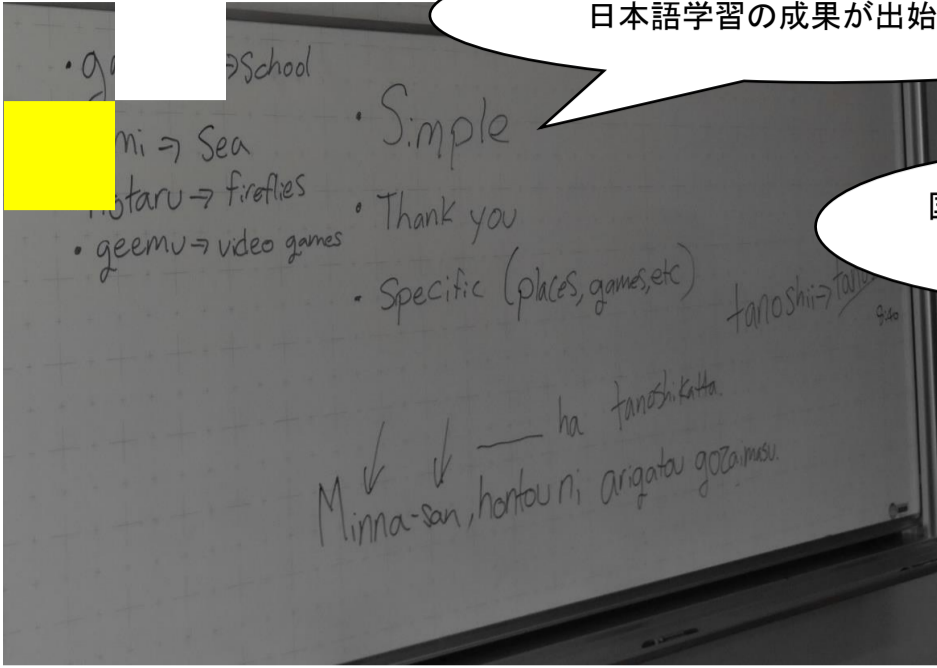 日本語学習の成果が出始
⇒ School
⇒ Sea
⇒ fireflies
• geemu ⇒ video games
• Simple
• Thank you
• Specific (places, games, etc)
tanoshii ⇒
___ ha tanoshikatta.
Minna-san, hontou ni arigatou gozaimasu.